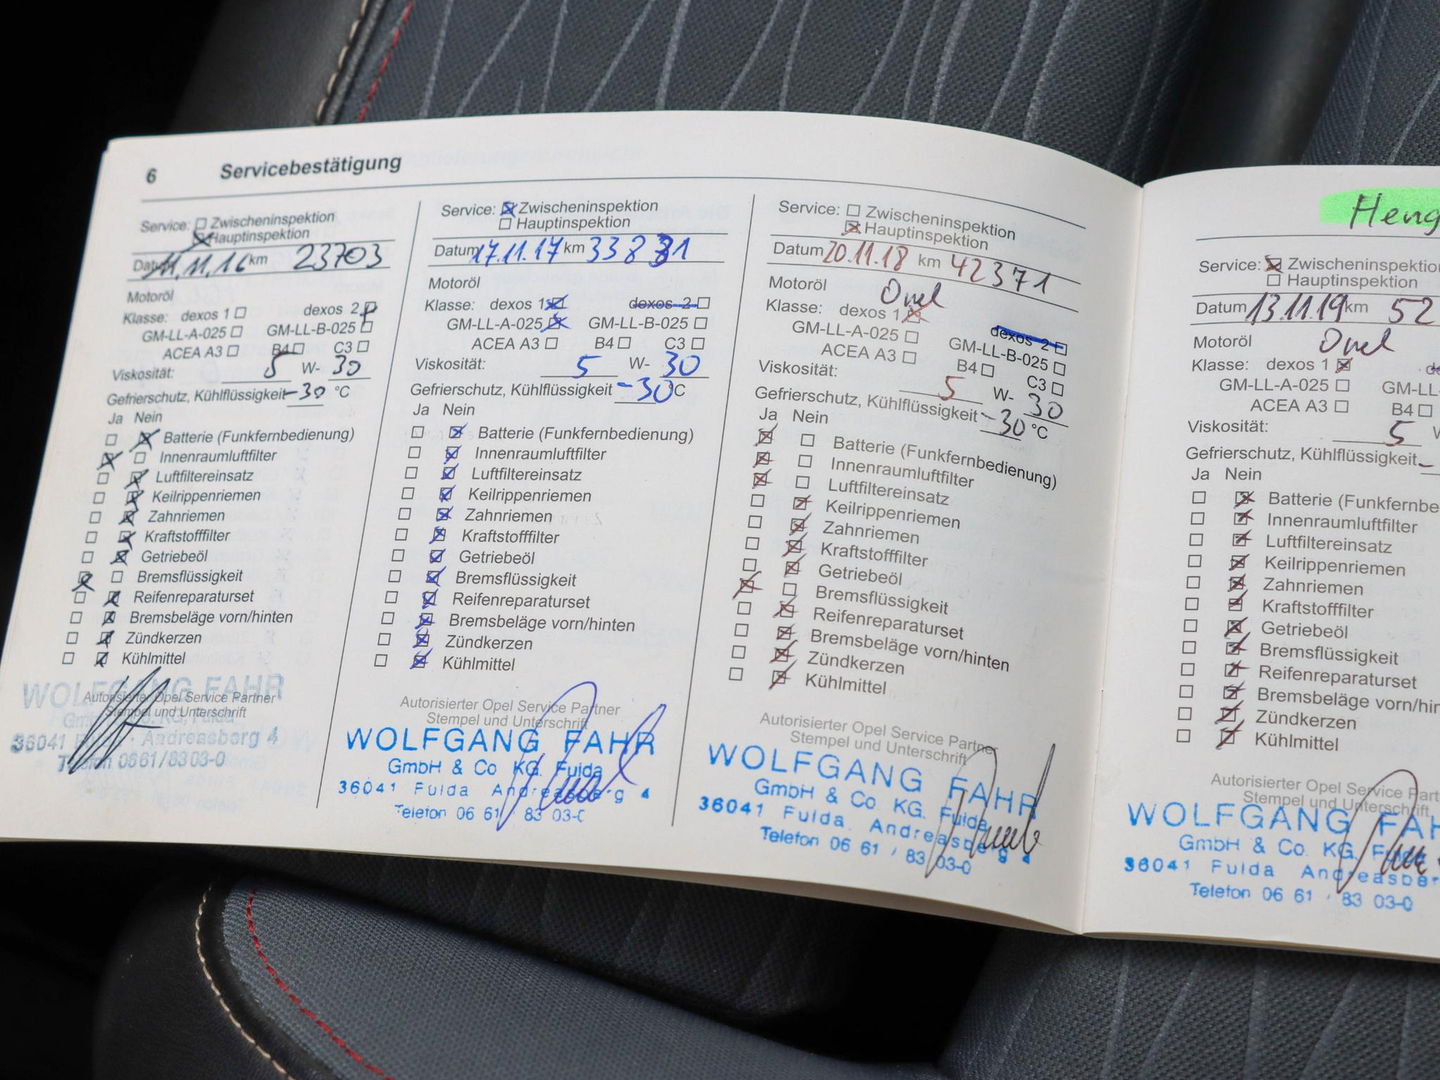 6 Servicebestätigung
Service: Zwischeninspektion
Hauptinspektion
Datum 11.11.16 km 23703
Motoröl
Klasse: dexos 1 dexos 2
GM-LL-A-025 GM-LL-B-025
ACEA A3 B4 C3
Viskosität: 5 W- 30
Gefrierschutz, Kühlflüssigkeit -30 °C
Ja Nein
Batterie (Funkfernbedienung)
Innenraumluftfilter
Luftfiltereinsatz
Keilrippenriemen
Zahnriemen
Kraftstofffilter
Getriebeöl
Bremsflüssigkeit
Reifenreparaturset
Bremsbeläge vorn/hinten
Zündkerzen
Kühlmittel
Autorisierter Opel Service Partner
Stempel und Unterschrift
WOLFGANG FAHR
GmbH & Co. KG, Fulda
36041 Andreasberg 4
Telefon 0661/8303-0
Service: Zwischeninspektion
Hauptinspektion
Datum 17.11.17 km 33831
Motoröl
Klasse: dexos 1 dexos 2
GM-LL-A-025 GM-LL-B-025
ACEA A3 B4 C3
Viskosität: 5 W- 30
Gefrierschutz, Kühlflüssigkeit -30 °C
Ja Nein
Batterie (Funkfernbedienung)
Innenraumluftfilter
Luftfiltereinsatz
Keilrippenriemen
Zahnriemen
Kraftstofffilter
Getriebeöl
Bremsflüssigkeit
Reifenreparaturset
Bremsbeläge vorn/hinten
Zündkerzen
Kühlmittel
Autorisierter Opel Service Partner
Stempel und Unterschrift
WOLFGANG FAHR
GmbH & Co. KG. Fulda
36041 Fulda Andreasberg 4
Telefon 06 61 / 83 03-0
Service: Zwischeninspektion
Hauptinspektion
Datum 20.11.18 km 42371
Motoröl Opel
Klasse: dexos 1 dexos 2
GM-LL-A-025 GM-LL-B-025
ACEA A3 B4 C3
Viskosität: 5 W- 30
Gefrierschutz, Kühlflüssigkeit -30 °C
Ja Nein
Batterie (Funkfernbedienung)
Innenraumluftfilter
Luftfiltereinsatz
Keilrippenriemen
Zahnriemen
Kraftstofffilter
Getriebeöl
Bremsflüssigkeit
Reifenreparaturset
Bremsbeläge vorn/hinten
Zündkerzen
Kühlmittel
Autorisierter Opel Service Partner
Stempel und Unterschrift
WOLFGANG FAHR
GmbH & Co. KG. Fulda
36041 Fulda. Andreasberg 4
Telefon 06 61 / 83 03-0
Heng
Service: Zwischeninspektion
Hauptinspektion
Datum 13.11.19 km 52
Motoröl Opel
Klasse: dexos 1
GM-LL-A-025 GM-LL-
ACEA A3 B4
Viskosität: 5 W
Gefrierschutz, Kühlflüssigkeit -
Ja Nein
Batterie (Funkfernbe
Innenraumluftfilter
Luftfiltereinsatz
Keilrippenriemen
Zahnriemen
Kraftstofffilter
Getriebeöl
Bremsflüssigkeit
Reifenreparaturset
Bremsbeläge vorn/hin
Zündkerzen
Kühlmittel
Autorisierter Opel Service Part
Stempel und Unterschrift
WOLFGANG FAH
GmbH & Co. KG. Fulda
36041 Fulda Andreasber
Telefon 06 61 / 83 03-0